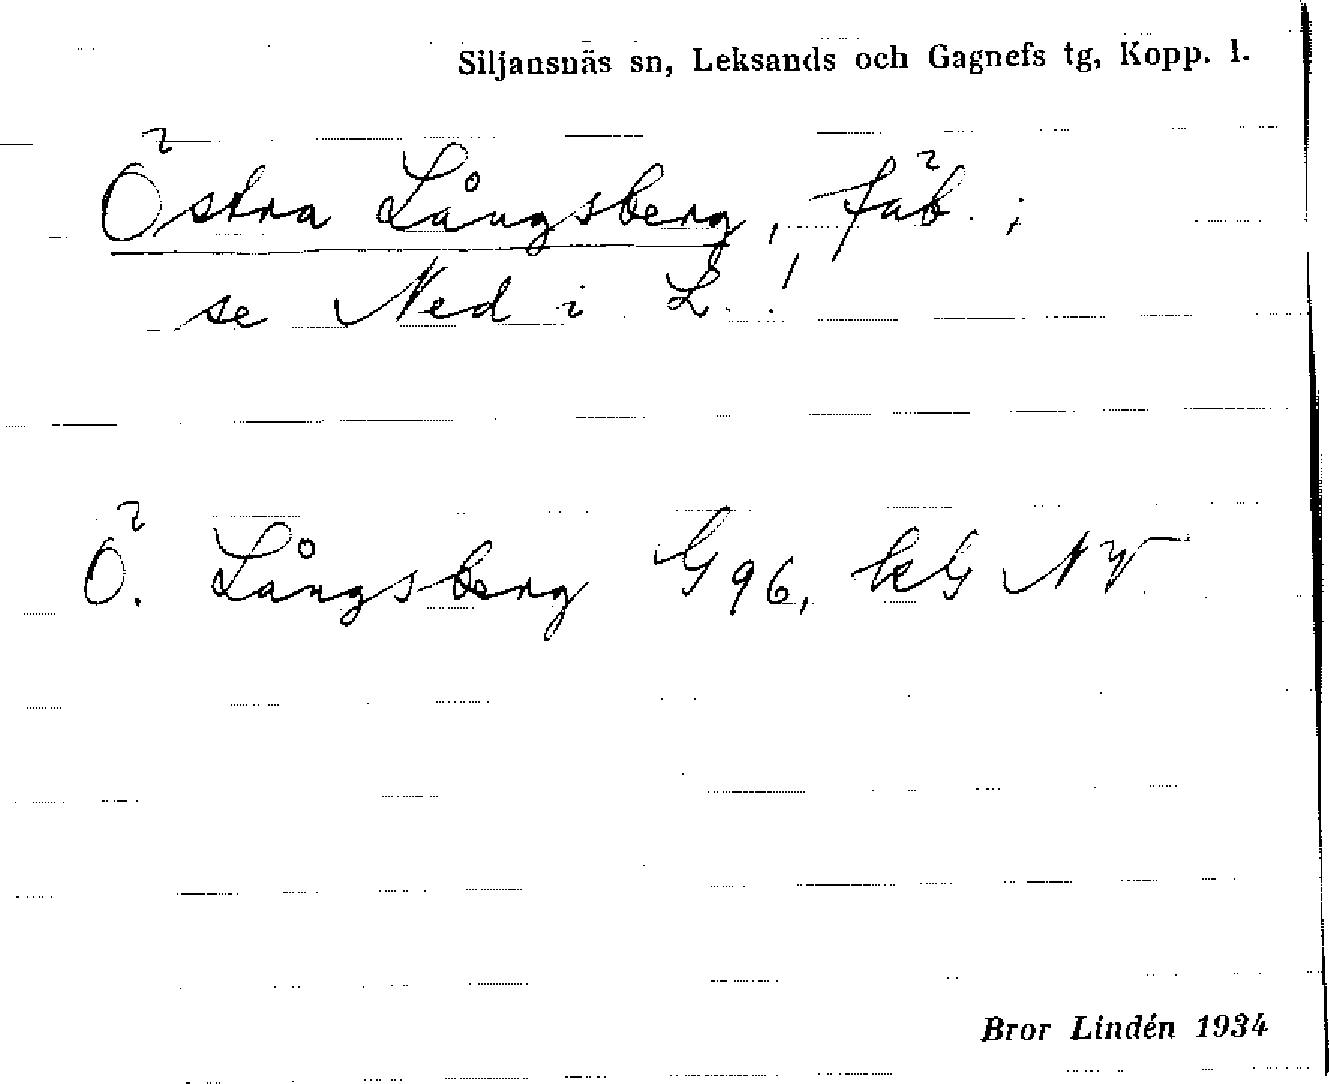 Siljansnäs sn, Leksands och Gagnefs tg, Kopp. l.
Östra Långsberg, fäb. ;
se Ned i L. !
Ö. Långsberg G 96, kG NV
Bror Lindén 1934